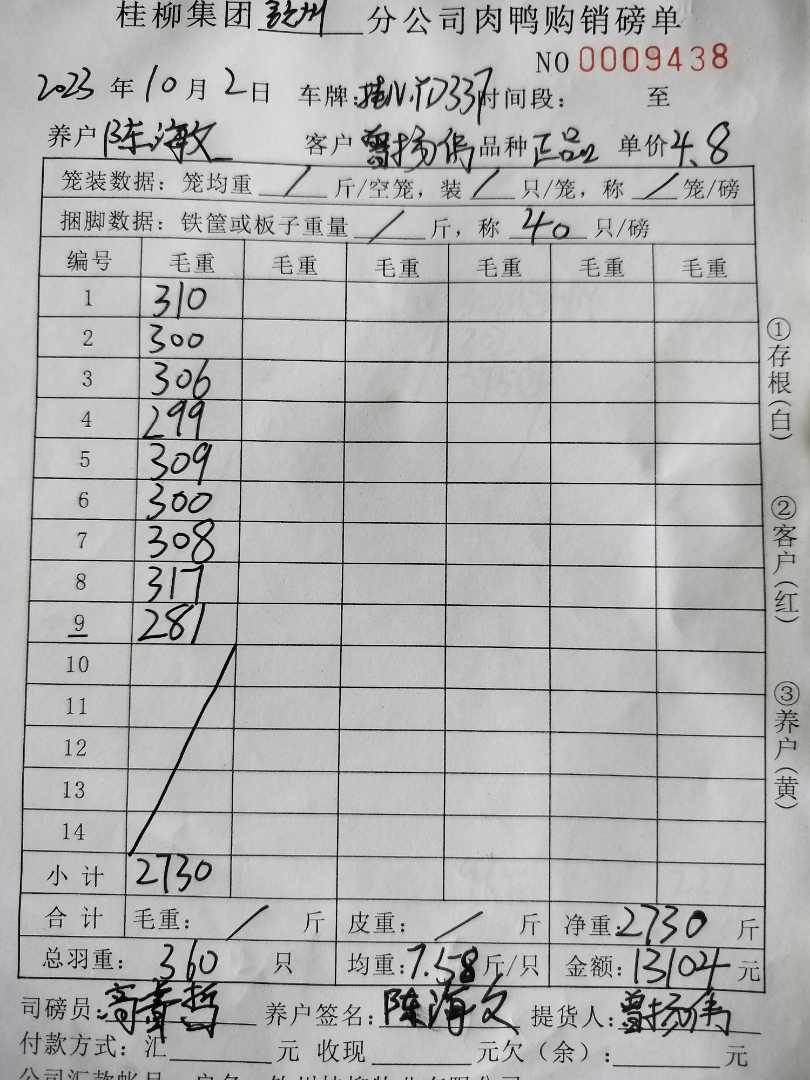 桂柳集团 钦州 分公司肉鸭购销磅单
NO 0009438
2023 年 10 月 2 日 车牌: 桂N·YD337 时间段: 至
养户 陈海文 客户 曾扬伟 品种 正品 单价 4.8
笼装数据: 笼均重 / 斤/空笼, 装 / 只/笼, 称 / 笼/磅
捆脚数据: 铁筐或板子重量 / 斤, 称 40 只/磅
编号 毛重 毛重 毛重 毛重 毛重 毛重
1 310
2 300
3 306
4 299
5 309
6 300
7 308
8 317
9 281
10
11
12
13
14
小计 2730
合计 毛重: / 斤 皮重: / 斤 净重: 2730 斤
总羽重: 360 只 均重: 7.58 斤/只 金额: 13104 元
司磅员: 养户签名: 陈海文 提货人: 曾扬伟
付款方式: 汇 元 收现 元欠(余): 元
①存根(白)
②客户(红)
③养户(黄)